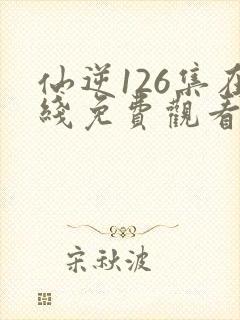 仙逆126集在
綫免費觀看
宋秋波